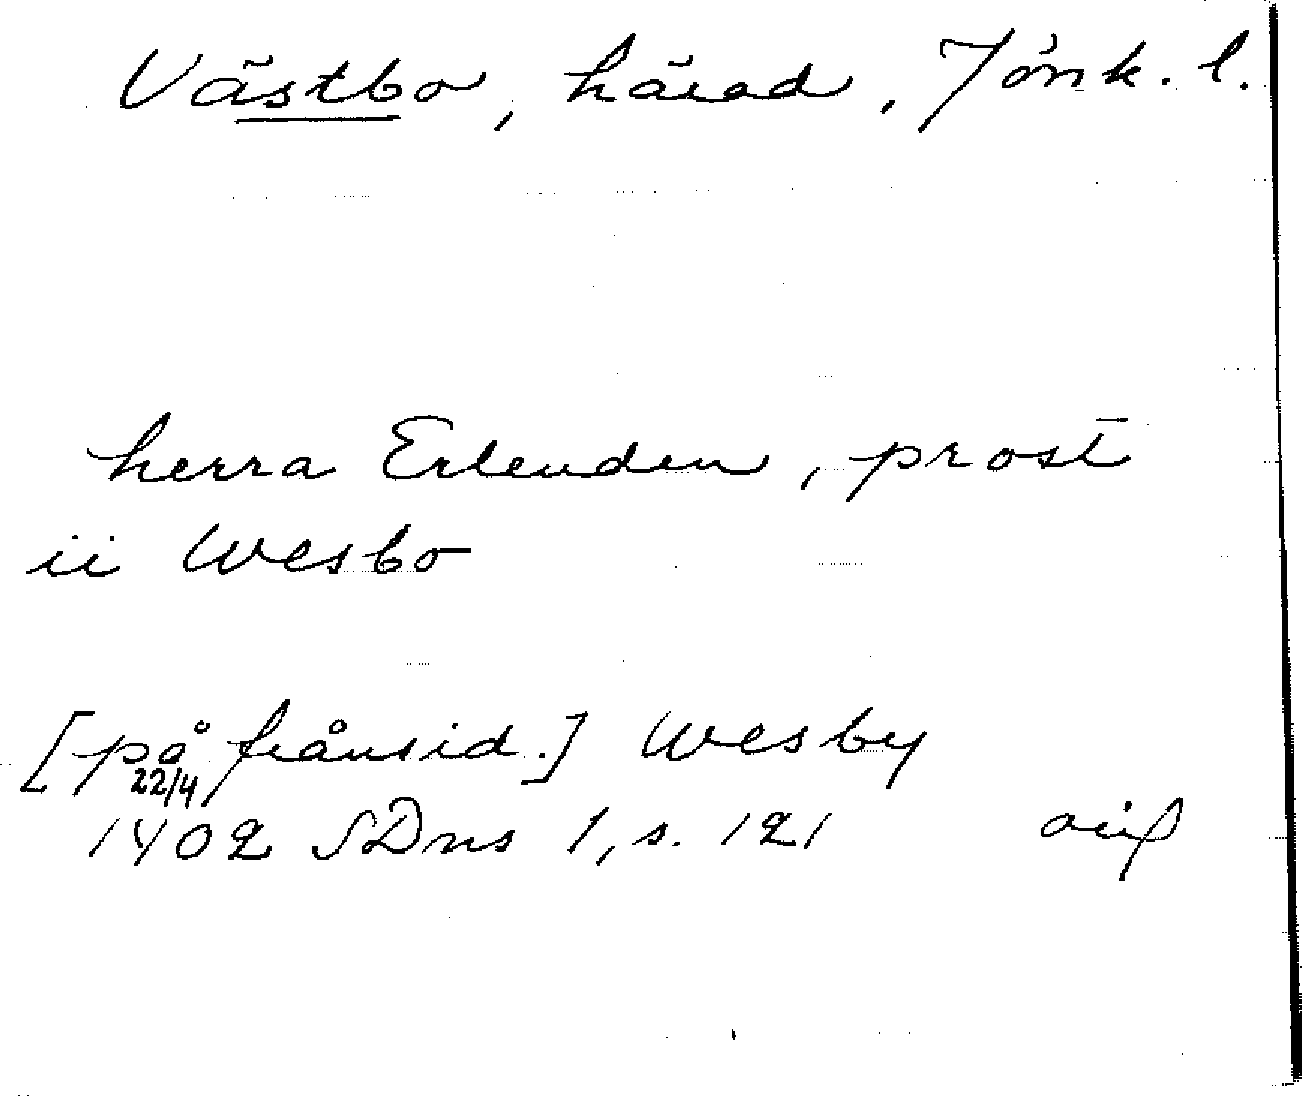 Västbo, härad, Jönk. l.
herra Erlenden, prost
ii Wesbo
[på frånsid.] Wesby
22/4
1402 SDns 1, s. 121